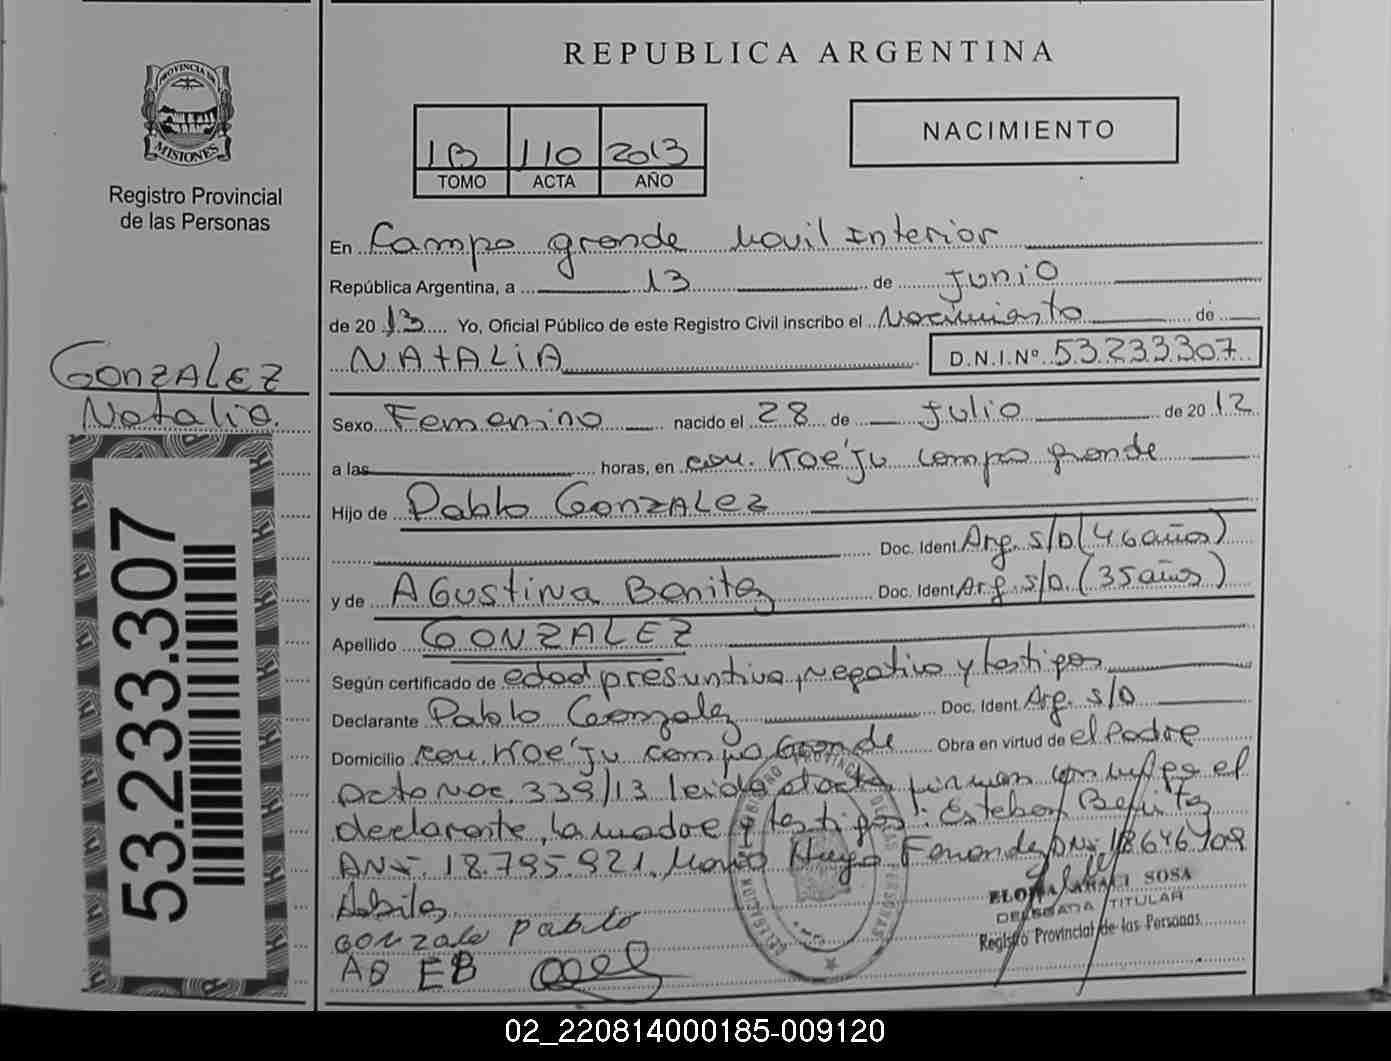 REPUBLICA ARGENTINA
PROVINCIA DE
MISIONES
Registro Provincial
de las Personas
1B 110 2013
TOMO ACTA AÑO
NACIMIENTO
En Campo grande Movil Interior
República Argentina, a 13 de Junio
de 20 13 Yo, Oficial Público de este Registro Civil inscribo el Nacimiento de
NATALIA D.N.I.Nº 53.233.307
GONZALEZ
Natalia.
53.233.307
Sexo Femenino nacido el 28 de Julio de 20 12
a las horas, en com. Koe'ju campo grande
Hijo de Pablo GONZALEZ
Doc. Ident. Arg. s/D (46 años)
y de AGustina Benitez Doc. Ident. Arg. s/D. (35 años)
Apellido GONZALEZ
Según certificado de edad presuntiva, negativo y testigos
Declarante Pablo Gonzalez Doc. Ident. Arg. s/D
Domicilio com. Koe'ju campo Grande Obra en virtud de el Padre
Acta Nac. 339/13 leida el acta firman el
declarante, la madre y testigos: Esteban Benitez
DNI. 18.795.921. Mario Hugo Fernandez DNI 18646709
gonzale pablo
AB EB
SOSA
DELEGADA TITULAR
Registro Provincial de las Personas
02_220814000185-009120